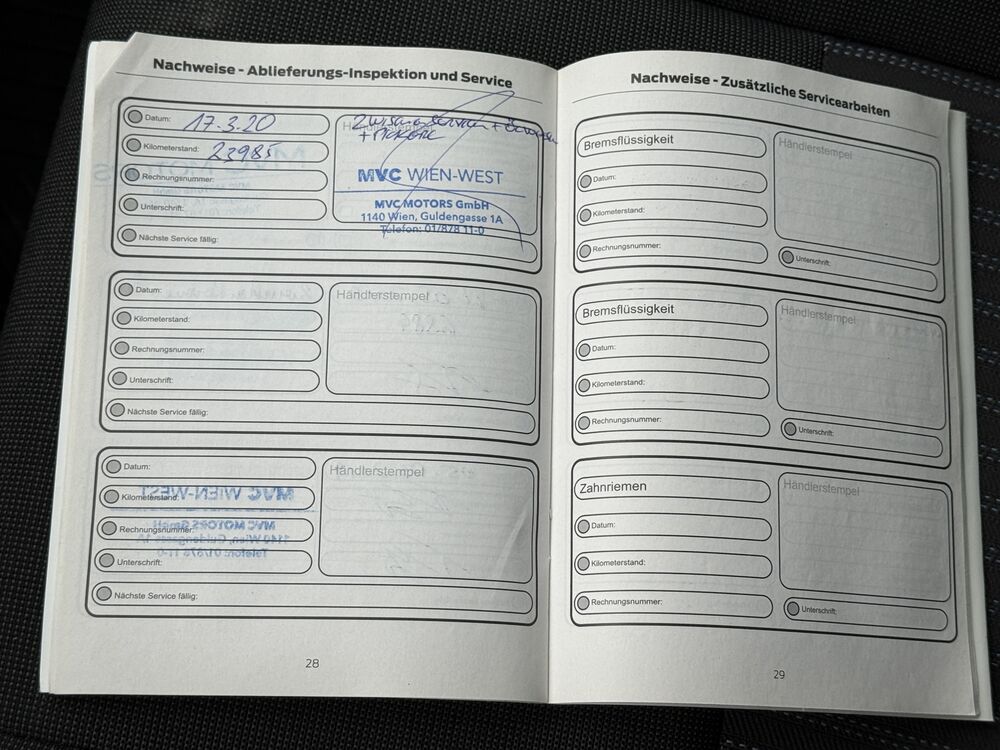 Nachweise - Ablieferungs-Inspektion und Service
Datum: 17.3.20
Kilometerstand: 23985
Rechnungsnummer:
Unterschrift:
Nächste Service fällig:
Händlerstempel
+
MVC WIEN-WEST
MVC MOTORS GmbH
1140 Wien, Guldengasse 1A
Telefon: 01/878 11-0
Datum:
Kilometerstand:
Rechnungsnummer:
Unterschrift:
Nächste Service fällig:
Händlerstempel
Datum:
Kilometerstand:
Rechnungsnummer:
Unterschrift:
Nächste Service fällig:
Händlerstempel
MVC WIEN-WEST
MVC MOTORS GmbH
1140 Wien, Guldengasse 1A
Telefon: 01/878 11-0
28
Nachweise - Zusätzliche Servicearbeiten
Bremsflüssigkeit
Datum:
Kilometerstand:
Rechnungsnummer:
Händlerstempel
Unterschrift:
Bremsflüssigkeit
Datum:
Kilometerstand:
Rechnungsnummer:
Händlerstempel
Unterschrift:
Zahnriemen
Datum:
Kilometerstand:
Rechnungsnummer:
Händlerstempel
Unterschrift:
29